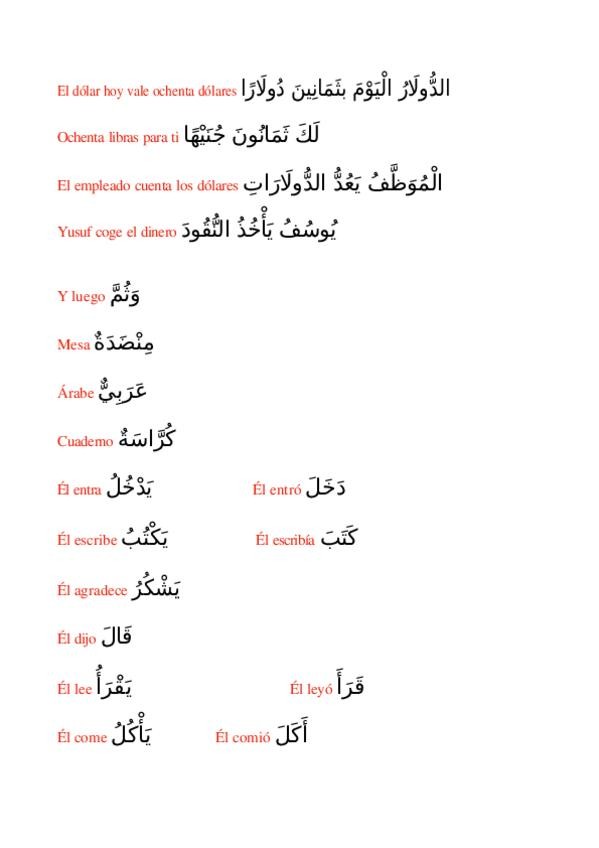 El dólar hoy vale ochenta dólares الدُّولَارُ الْيَوْمَ بثَمَانِينَ دُولَارًا
Ochenta libras para ti لَكَ ثَمَانُونَ جُنَيْهًا
El empleado cuenta los dólares الْمُوَظَّفُ يَعُدُّ الدُّولَارَاتِ
Yusuf coge el dinero يُوسُفُ يَأْخُذُ النُّقُودَ
Y luego وَثُمَّ
Mesa مِنْضَدَةٌ
Árabe عَرَبِيٌّ
Cuaderno كُرَّاسَةٌ
Él entra يَدْخُلُ Él entró دَخَلَ
Él escribe يَكْتُبُ Él escribía كَتَبَ
Él agradece يَشْكُرُ
Él dijo قَالَ
Él lee يَقْرَأُ Él leyó قَرَأَ
Él come يَأْكُلُ Él comió أَكَلَ